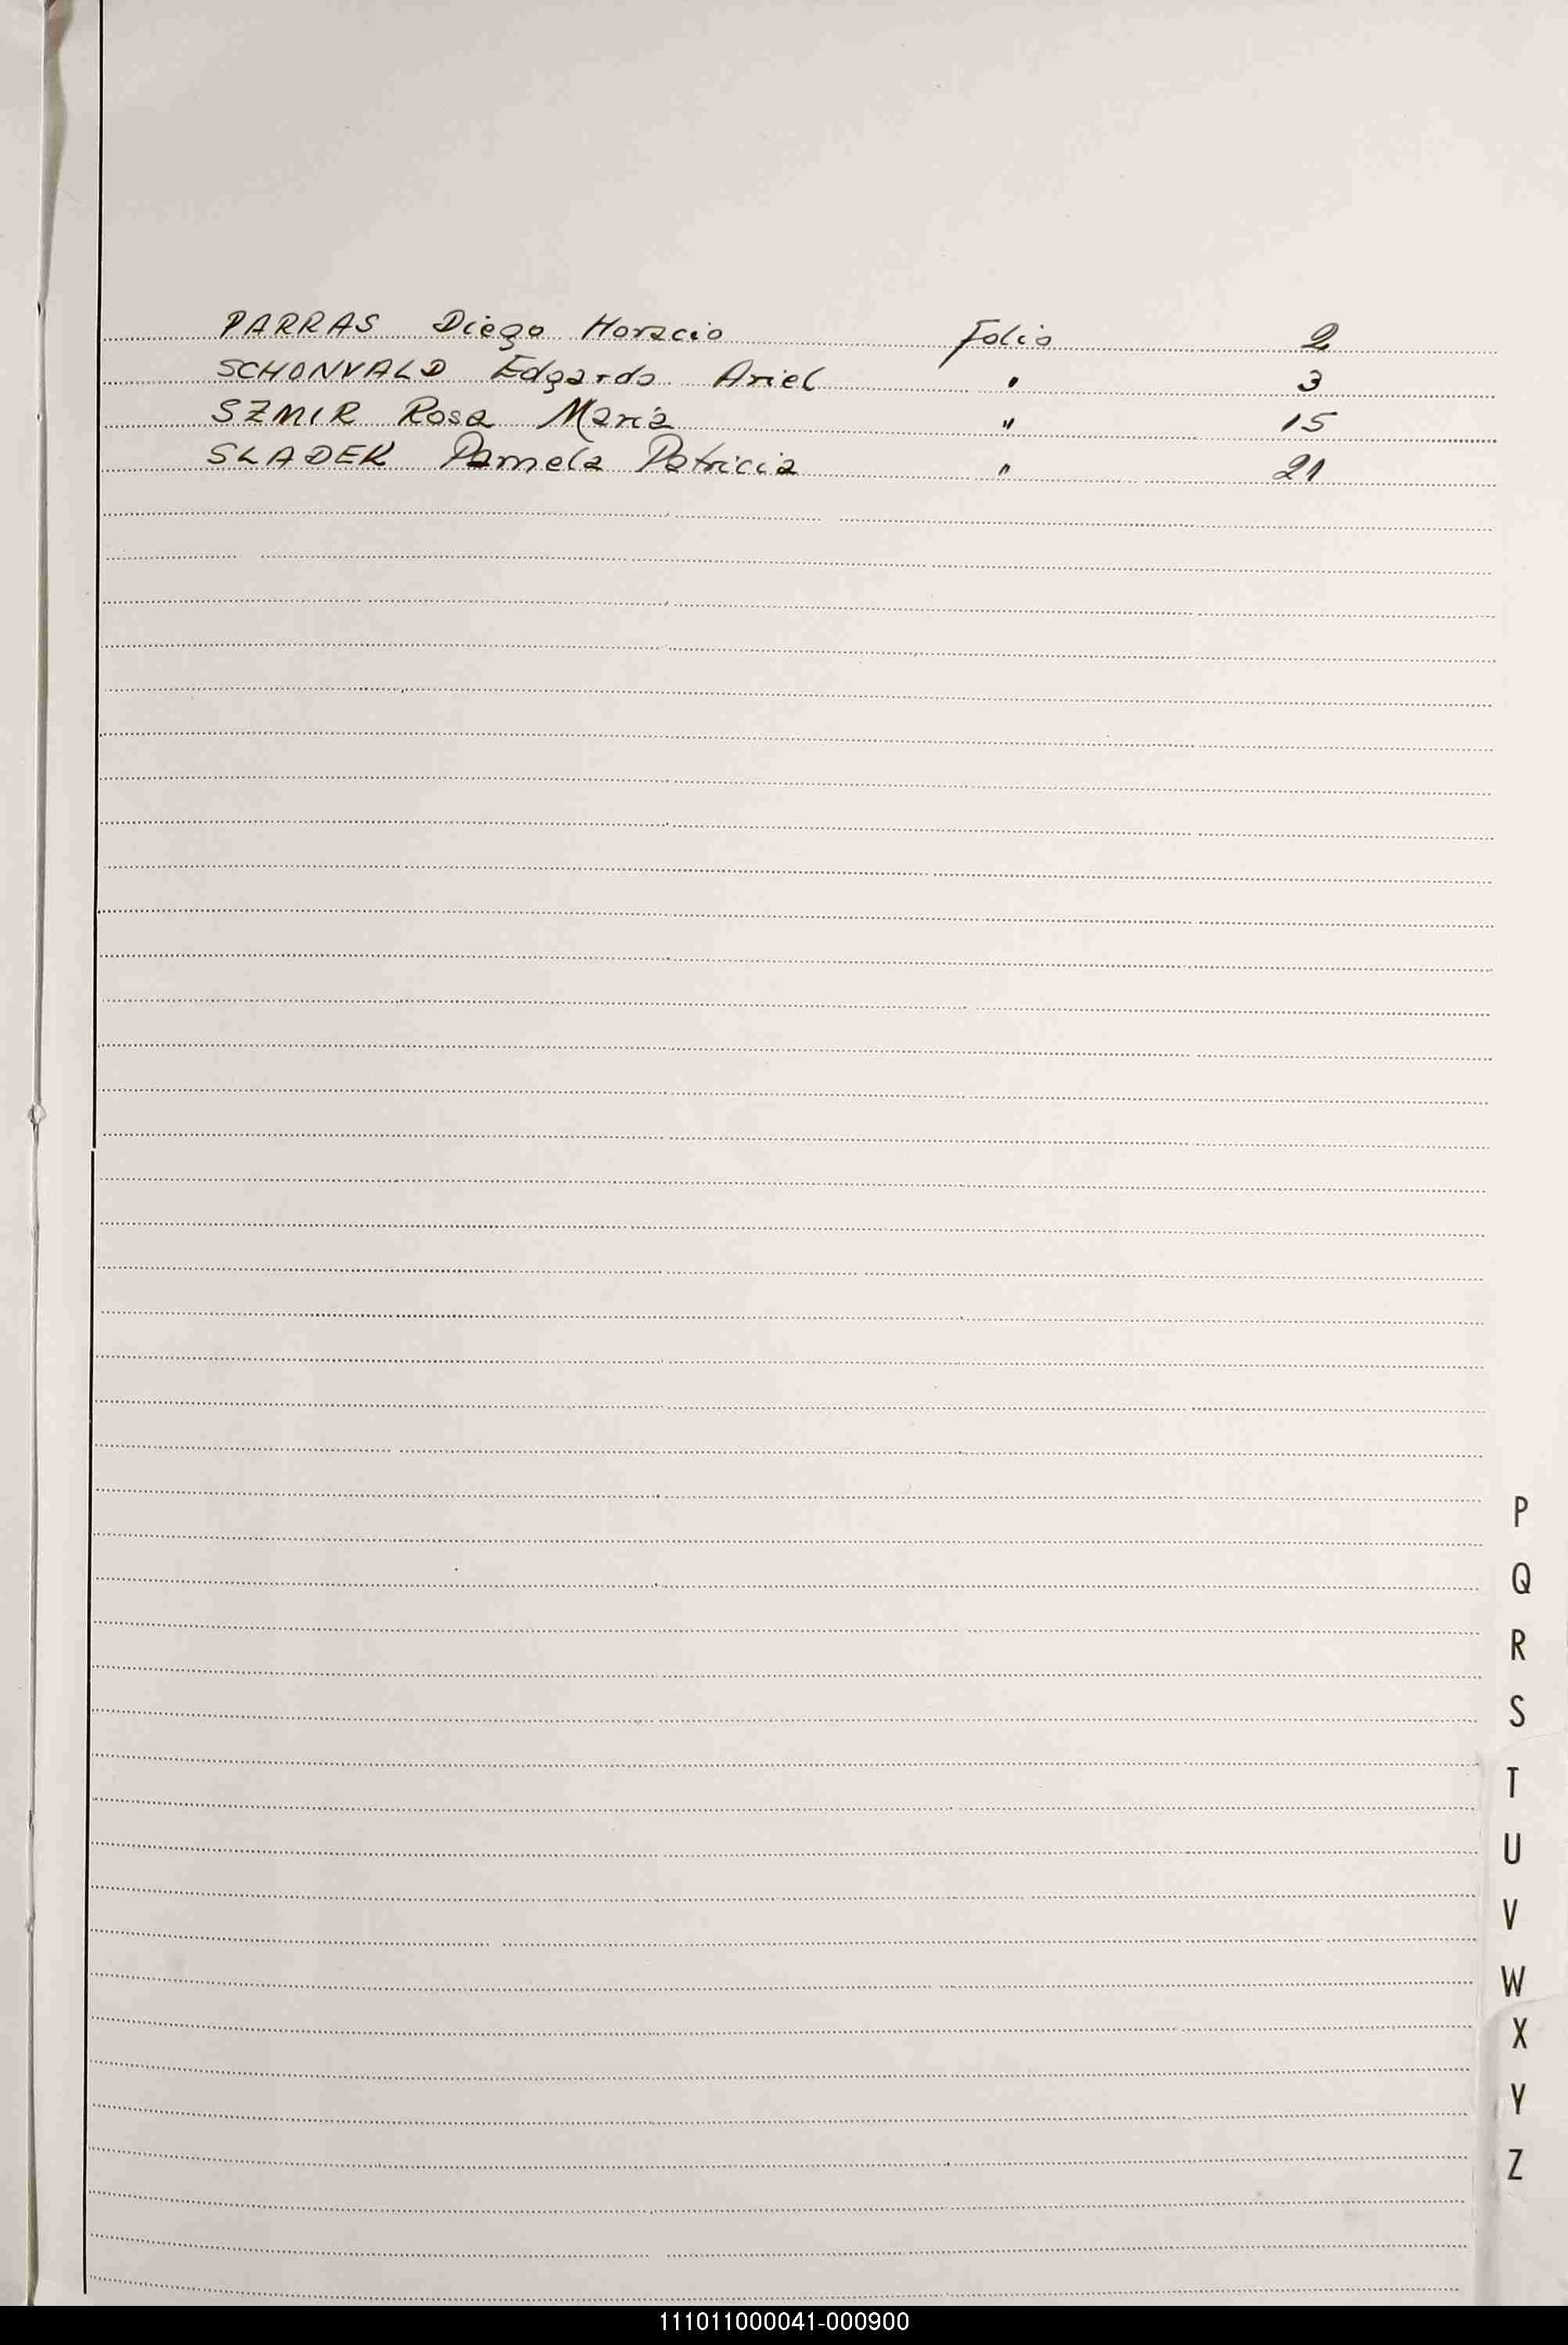 PARRAS Diego Horacio Folio 2
SCHONVALD Edgardo Ariel " 3
SZMIR Rosa Maria " 15
SLADEK Pamela Patricia " 21
P
Q
R
S
T
U
V
W
X
Y
Z
111011000041-000900